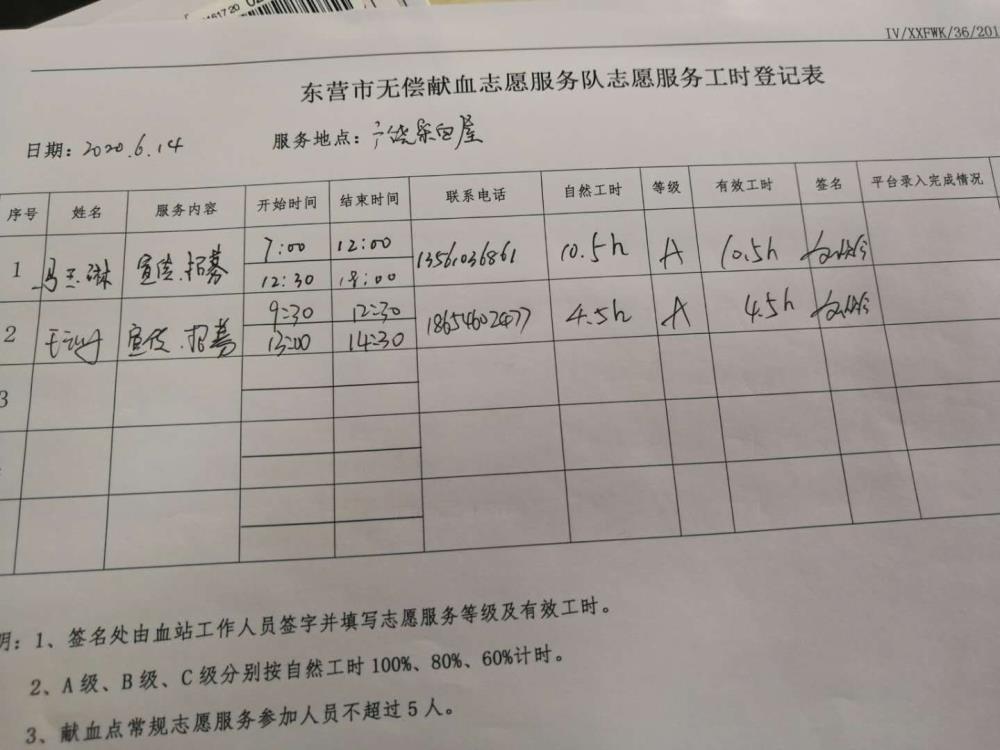 IV/XXFWK/36/201
东营市无偿献血志愿服务队志愿服务工时登记表
日期：2020.6.14 服务地点：广饶采血屋
序号 姓名 服务内容 开始时间 结束时间 联系电话 自然工时 等级 有效工时 签名 平台录入完成情况
1 宣传.招募 7:00 12:00 13561036861 10.5h A 10.5h
12:30 18:00
2 宣传.招募 9:30 12:30 18654602477 4.5h A 4.5h
13:00 14:30
3
明：1、签名处由血站工作人员签字并填写志愿服务等级及有效工时。
2、A级、B级、C级分别按自然工时100%、80%、60%计时。
3、献血点常规志愿服务参加人员不超过5人。